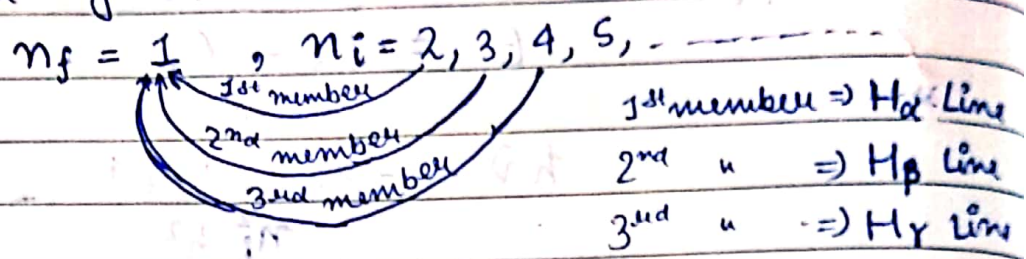 nf = 1 , ni = 2, 3, 4, 5, - - - - - - - -
1st member
2nd member
3rd member
1st member => Hα Line
2nd " => Hβ Line
3rd " => Hγ Line